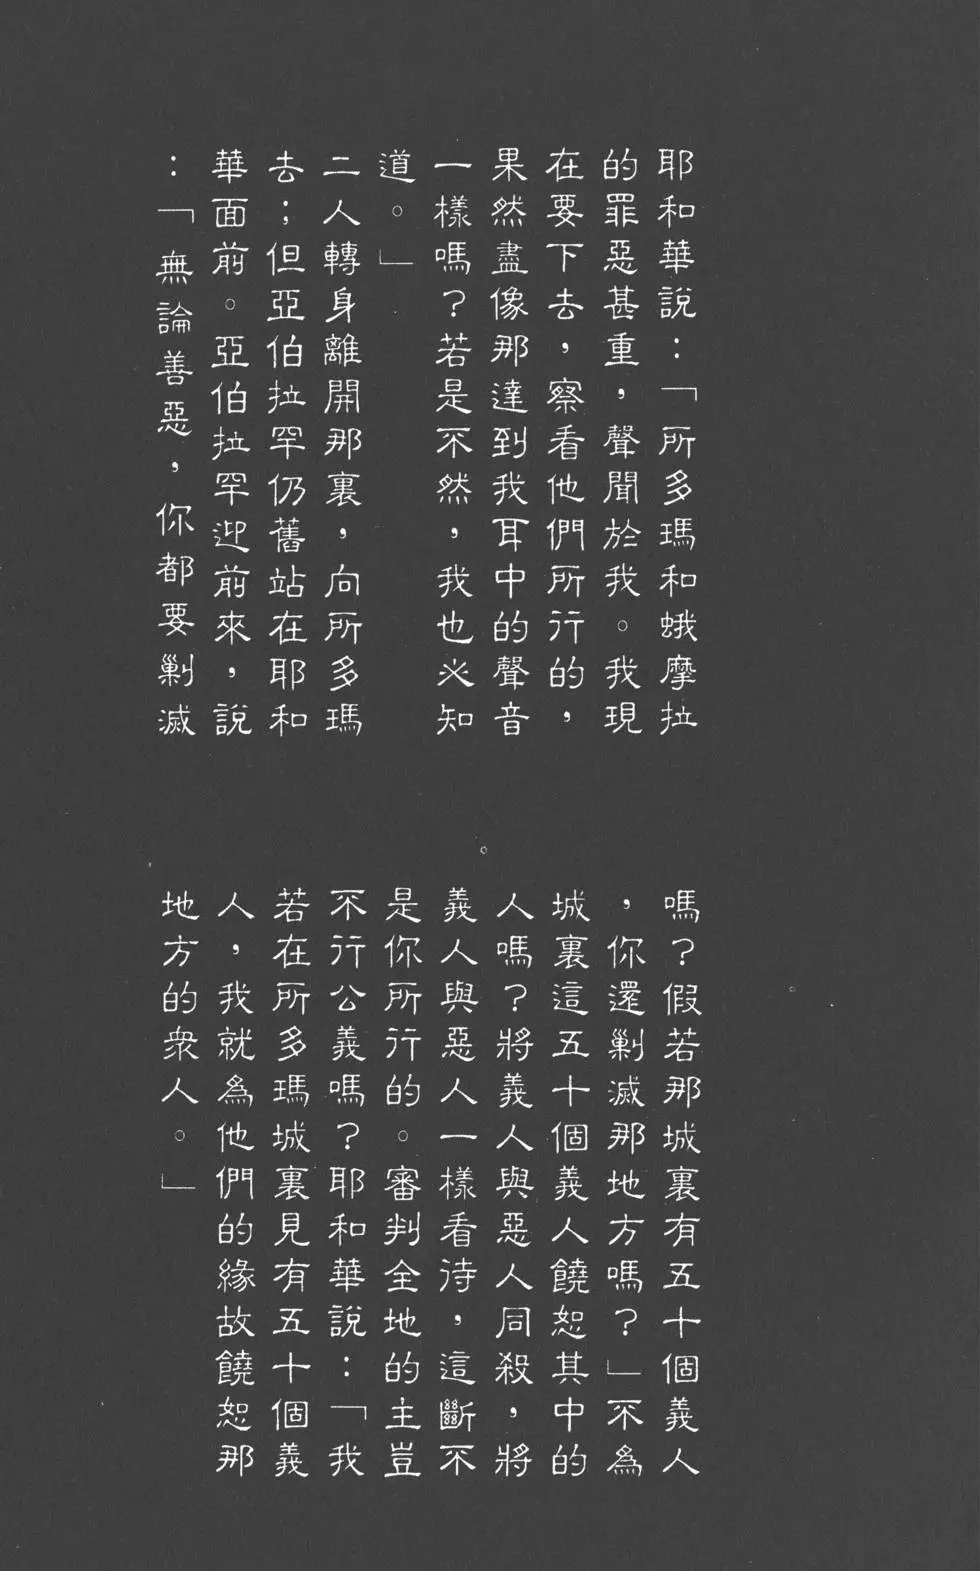 耶和華說：「所多瑪和蛾摩拉
的罪惡甚重，聲聞於我。我現
在要下去，察看他們所行的，
果然盡像那達到我耳中的聲音
一樣嗎？若是不然，我也必知
道。」
二人轉身離開那裏，向所多瑪
去；但亞伯拉罕仍舊站在耶和
華面前。亞伯拉罕迎前來，說
：「無論善惡，你都要剿滅
嗎？假若那城裏有五十個義人
，你還剿滅那地方嗎？」不為
城裏這五十個義人饒恕其中的
人嗎？將義人與惡人同殺，將
義人與惡人一樣看待，這斷不
是你所行的。審判全地的主豈
不行公義嗎？耶和華說：「我
若在所多瑪城裏見有五十個義
人，我就為他們的緣故饒恕那
地方的衆人。」